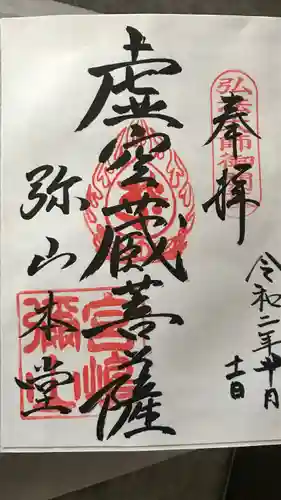 奉拝
令和二年十月
十一日
虚空蔵菩薩
弥山本堂
宮嶋
彌山